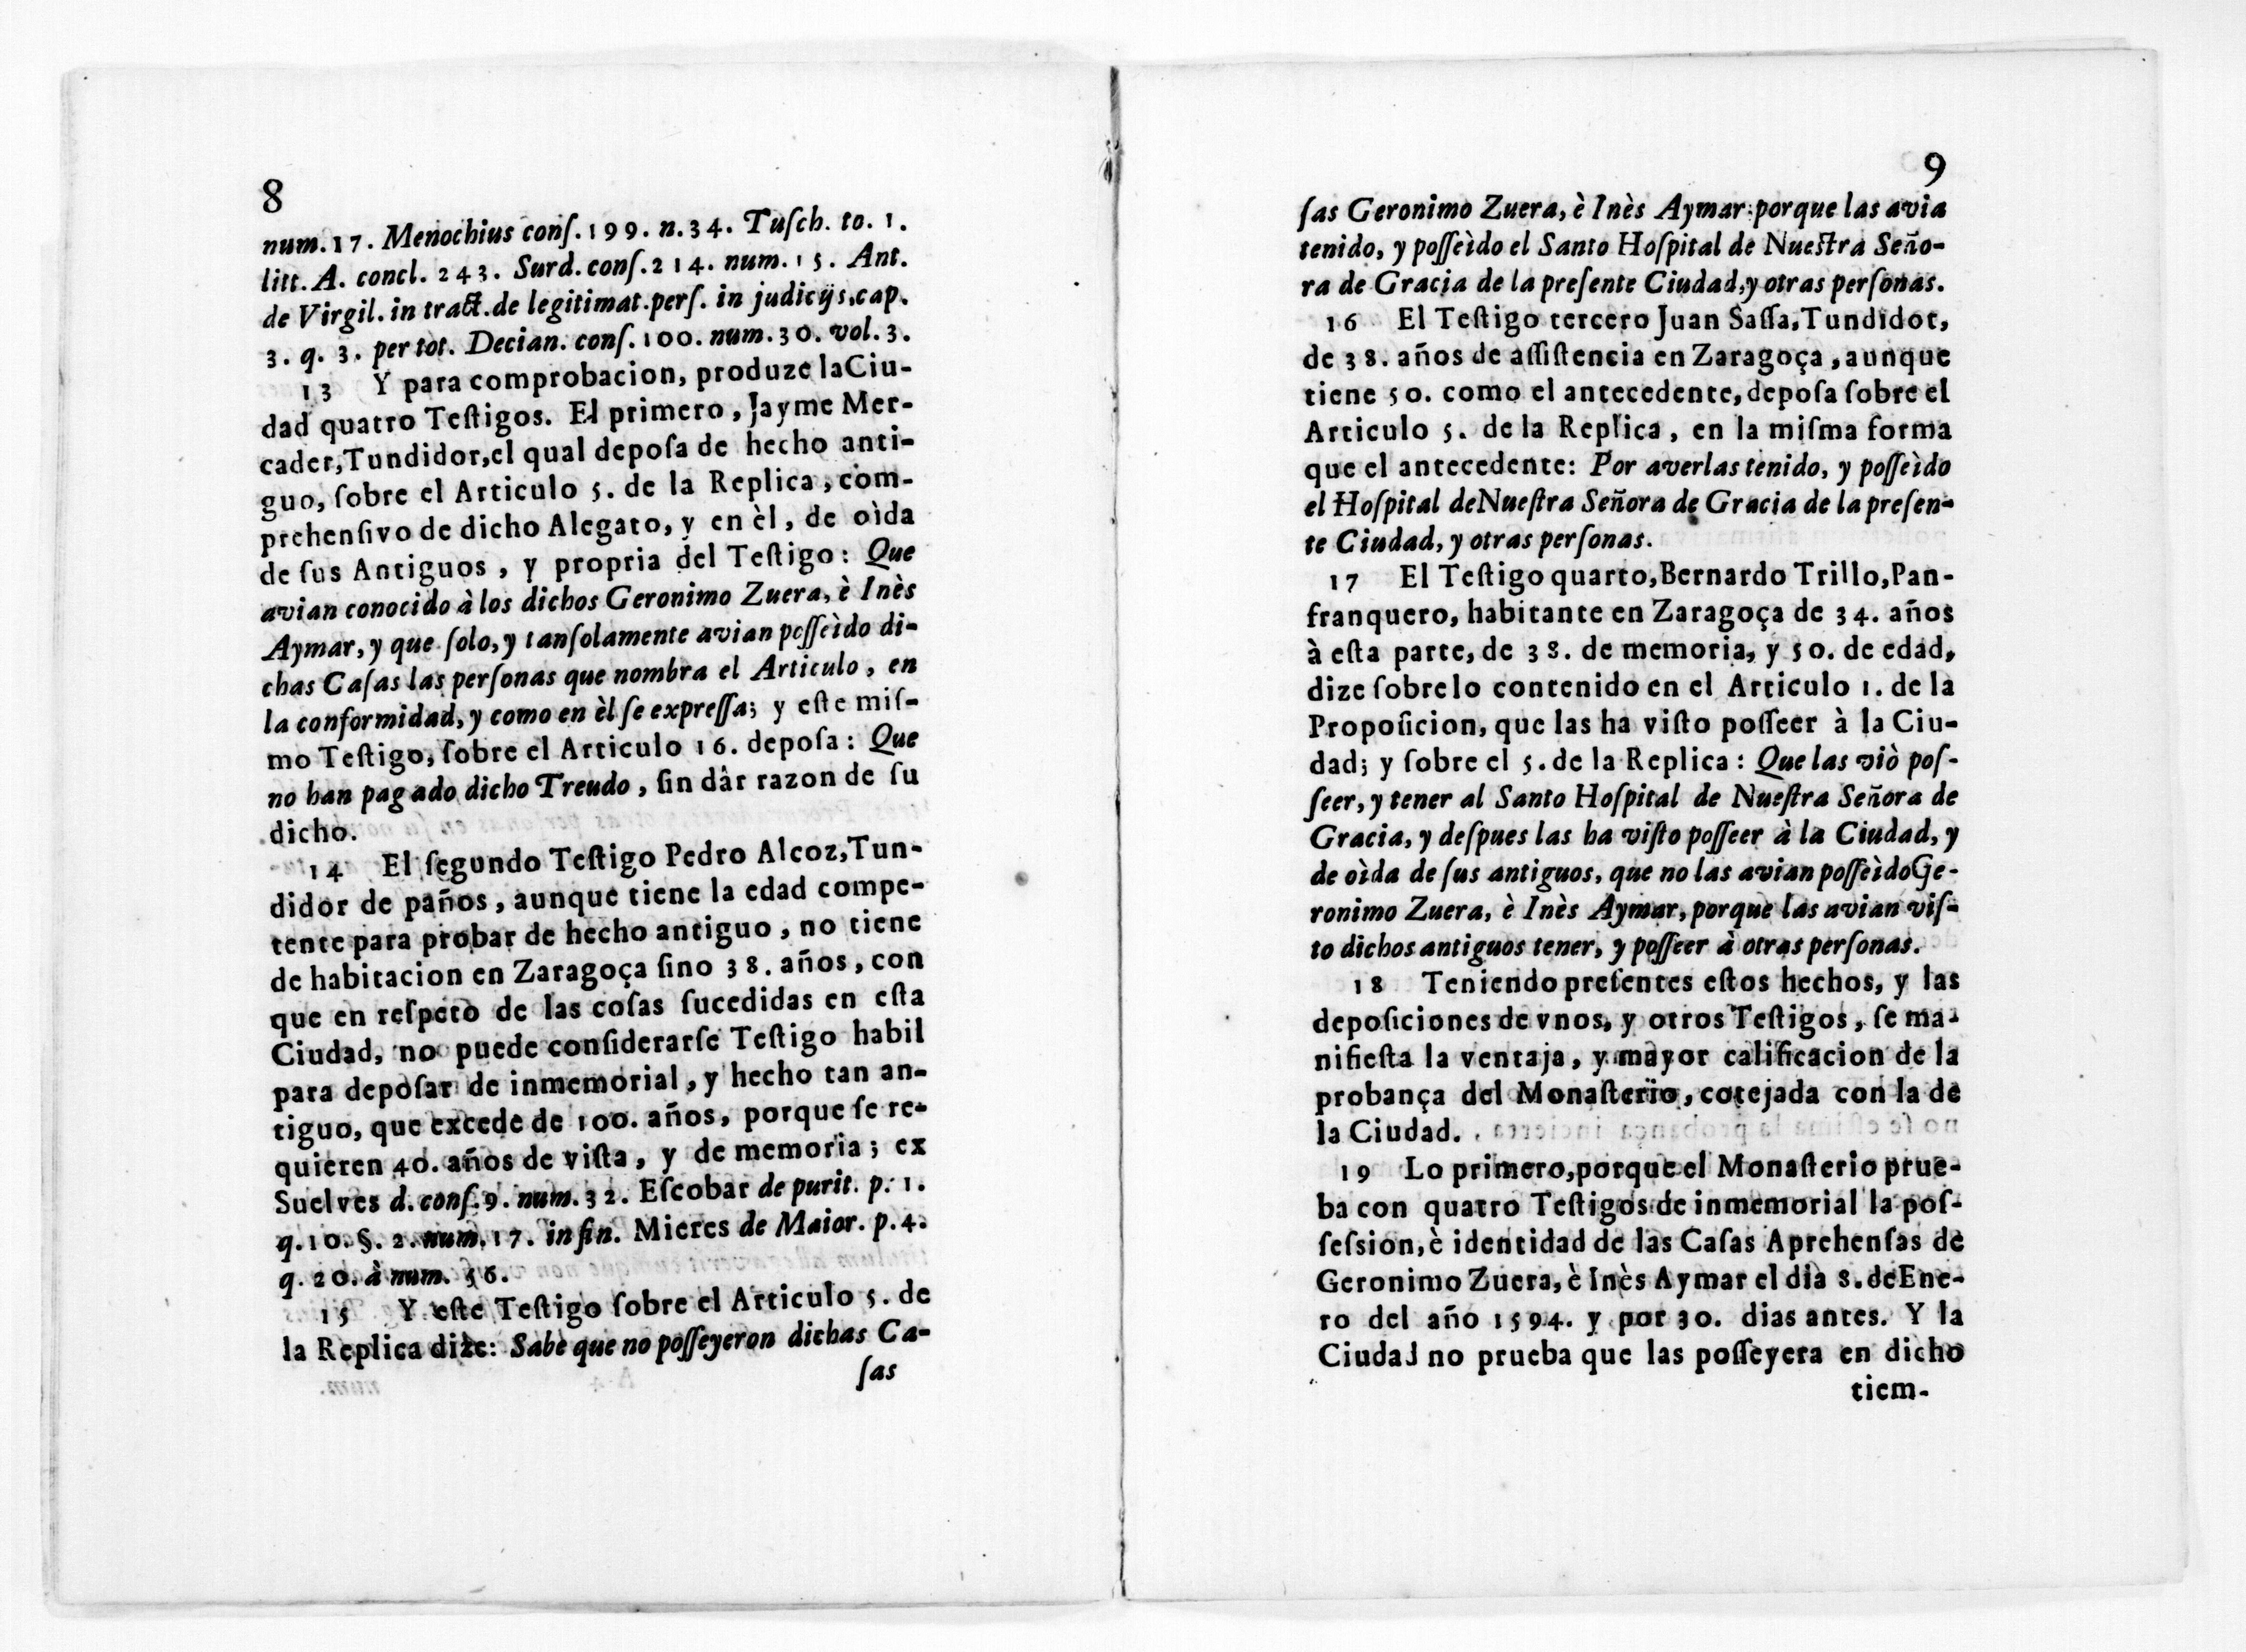 8
num.17. Menochius conſ.199. n.34. Tuſch. to. 1.
litt. A. concl. 243. Surd. conſ.214. num.15. Ant.
de Virgil. in tract.de legitimat.perſ. in judicijs,cap.
3. q. 3. per tot. Decian. conſ.100. num.30. vol.3.
13 Y para comprobacion, produze laCiu-
dad quatro Teſtigos. El primero, Jayme Mer-
cader,Tundidor,el qual depoſa de hecho anti-
guo, ſobre el Articulo 5. de la Replica, com-
prehenſivo de dicho Alegato, y en èl, de oìda
de ſus Antiguos, y propria del Teſtigo: Que
avian conocido à los dichos Geronimo Zuera, è Inès
Aymar, y que ſolo, y tanſolamente avian poſſeìdo di-
chas Caſas las perſonas que nombra el Articulo, en
la conformidad, y como en èl ſe expreſſa; y eſte miſ-
mo Teſtigo, ſobre el Articulo 16. depoſa: Que
no han pagado dicho Treudo, ſin dàr razon de ſu
dicho.
14 El ſegundo Teſtigo Pedro Alcoz,Tun-
didor de paños, aunque tiene la edad compe-
tente para probar de hecho antiguo, no tiene
de habitacion en Zaragoça ſino 38. años, con
que en reſpeto de las coſas ſucedidas en eſta
Ciudad, no puede conſiderarſe Teſtigo habil
para depoſar de inmemorial, y hecho tan an-
tiguo, que excede de 100. años, porque ſe re-
quieren 40. años de viſta, y de memoria; ex
Suelves d. conſ.9. num.32. Eſcobar de purit. p. 1.
q.10. §. 2. num.17. in fin. Mieres de Maior. p.4.
q. 20. à num. 56.
15 Y eſte Teſtigo ſobre el Articulo 5. de
la Replica dize: Sabe que no poſſeyeron dichas Ca-
ſas
9
ſas Geronimo Zuera, è Inès Aymar:porque las avia
tenido, y poſſeìdo el Santo Hoſpital de Nueſtra Seño-
ra de Gracia de la preſente Ciudad,y otras perſonas.
16 El Teſtigo tercero Juan Saſſa,Tundidor,
de 38. años de aſſiſtencia en Zaragoça, aunque
tiene 50. como el antecedente, depoſa ſobre el
Articulo 5. de la Replica, en la miſma forma
que el antecedente: Por averlas tenido, y poſſeìdo
el Hoſpital deNueſtra Señora de Gracia de la preſen-
te Ciudad, y otras perſonas.
17 El Teſtigo quarto,Bernardo Trillo,Pan-
franquero, habitante en Zaragoça de 34. años
à eſta parte, de 38. de memoria, y 50. de edad,
dize ſobre lo contenido en el Articulo 1. de la
Propoſicion, que las ha viſto poſſeer à la Ciu-
dad; y ſobre el 5. de la Replica: Que las viò poſ-
ſeer, y tener al Santo Hoſpital de Nueſtra Señora de
Gracia, y deſpues las ha viſto poſſeer à la Ciudad, y
de oìda de ſus antiguos, que no las avian poſſeìdoGe-
ronimo Zuera, è Inès Aymar, porque las avian viſ-
to dichos antiguos tener, y poſſeer à otras perſonas.
18 Teniendo preſentes eſtos hechos, y las
depoſiciones de vnos, y otros Teſtigos, ſe ma-
nifieſta la ventaja, y mayor calificacion de la
probança del Monaſterio, cotejada con la de
la Ciudad.
19 Lo primero,porque el Monaſterio prue-
ba con quatro Teſtigos de inmemorial la poſ-
ſeſsion, è identidad de las Caſas Aprehenſas de
Geronimo Zuera, è Inès Aymar el dia 8. deEne-
ro del año 1594. y por 30. dias antes. Y la
Ciudad no prueba que las poſſeyera en dicho
tiem-